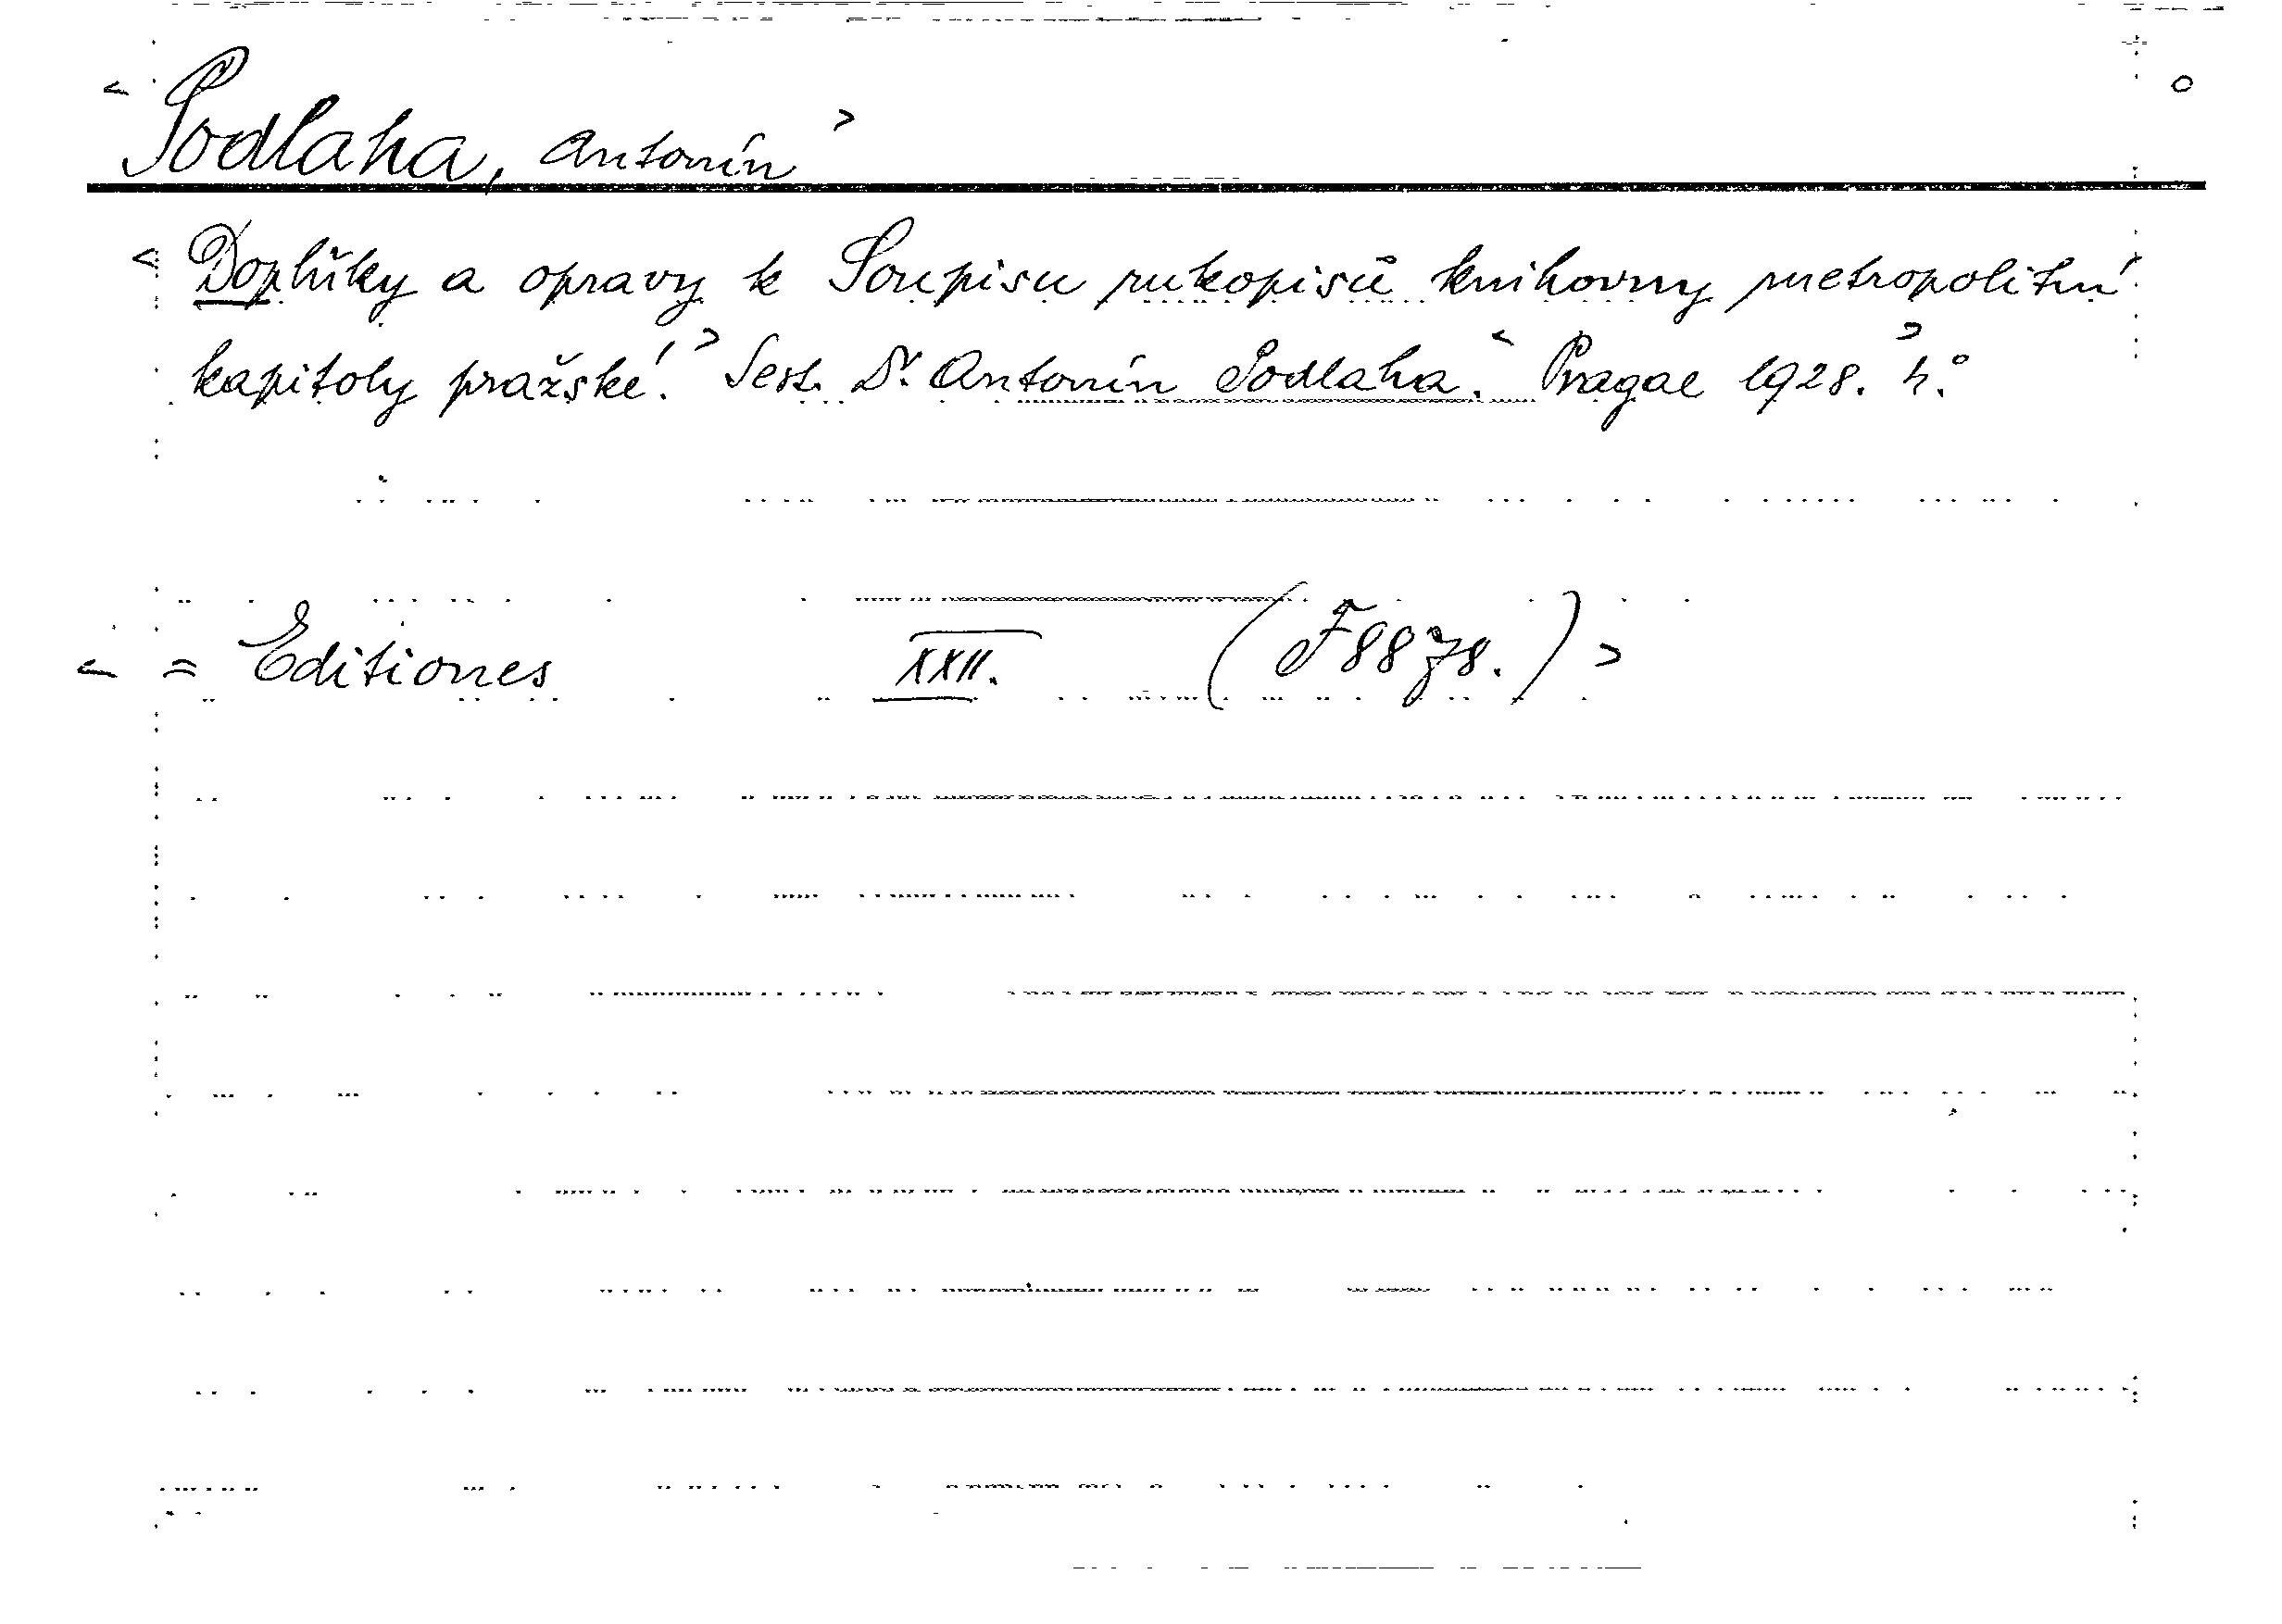 < Podlaha, Antonín >
< Doplňky a opravy k Soupisu rukopisů knihovny metropolitní
kapitoly pražské. > Sest. Dr. Antonín Podlaha. < Pragae 1928. > 4.°
< = Editiones XXII. (F8878.) >